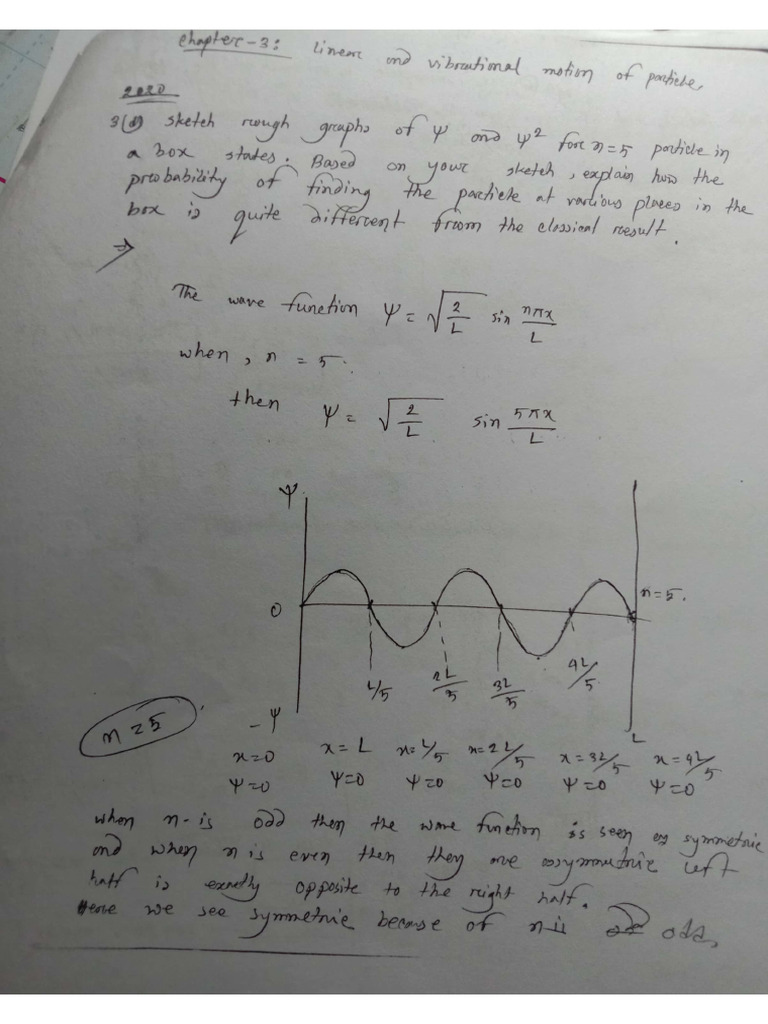 chapter-3: linear and vibrational motion of particle
2020
3(d) sketch rough graphs of ψ and ψ² for n=5 particle in
a box states. Based on your sketch, explain how the
probability of finding the particle at various places in the
box is quite different from the classical result.
⇒
The wave function ψ = √(2/L) sin nπx/L
when, n = 5.
then ψ = √(2/L) sin 5πx/L
ψ
0
n=5.
L/5 2L/5 3L/5 4L/5
-ψ
L
n=5
x=0 x=L x=L/5 x=2L/5 x=3L/5 x=4L/5
ψ=0 ψ=0 ψ=0 ψ=0 ψ=0 ψ=0
when n-is odd then the wave function is seen as symmetric
and when n is even then they are assymmetric left
half is exactly opposite to the right half.
Here we see symmetric because of n is odd,